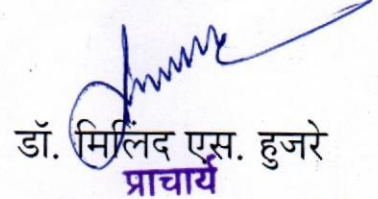 डॉ. मिलिंद एस. हुजरे
प्राचार्य